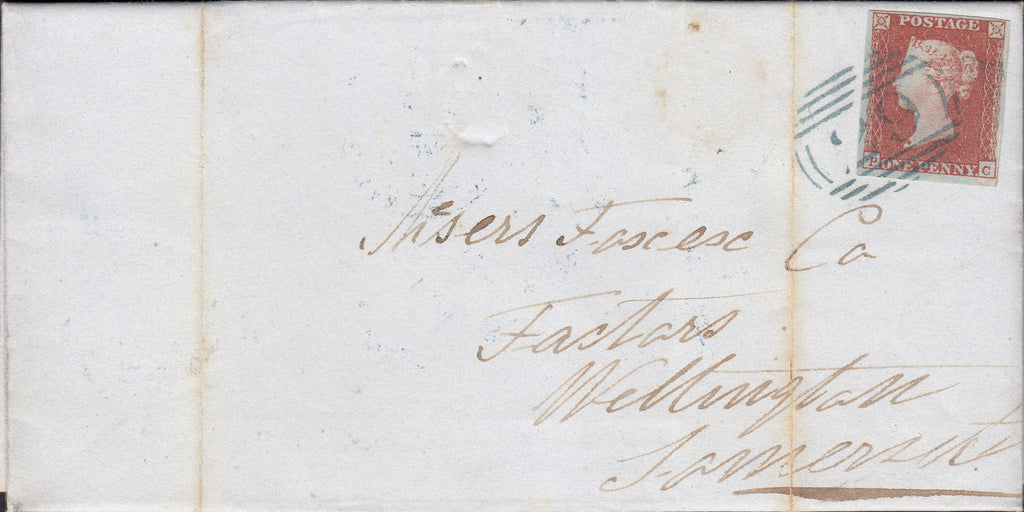 POSTAGE
ONE PENNY C
Messrs Co
Factors
Wellington
Somerset